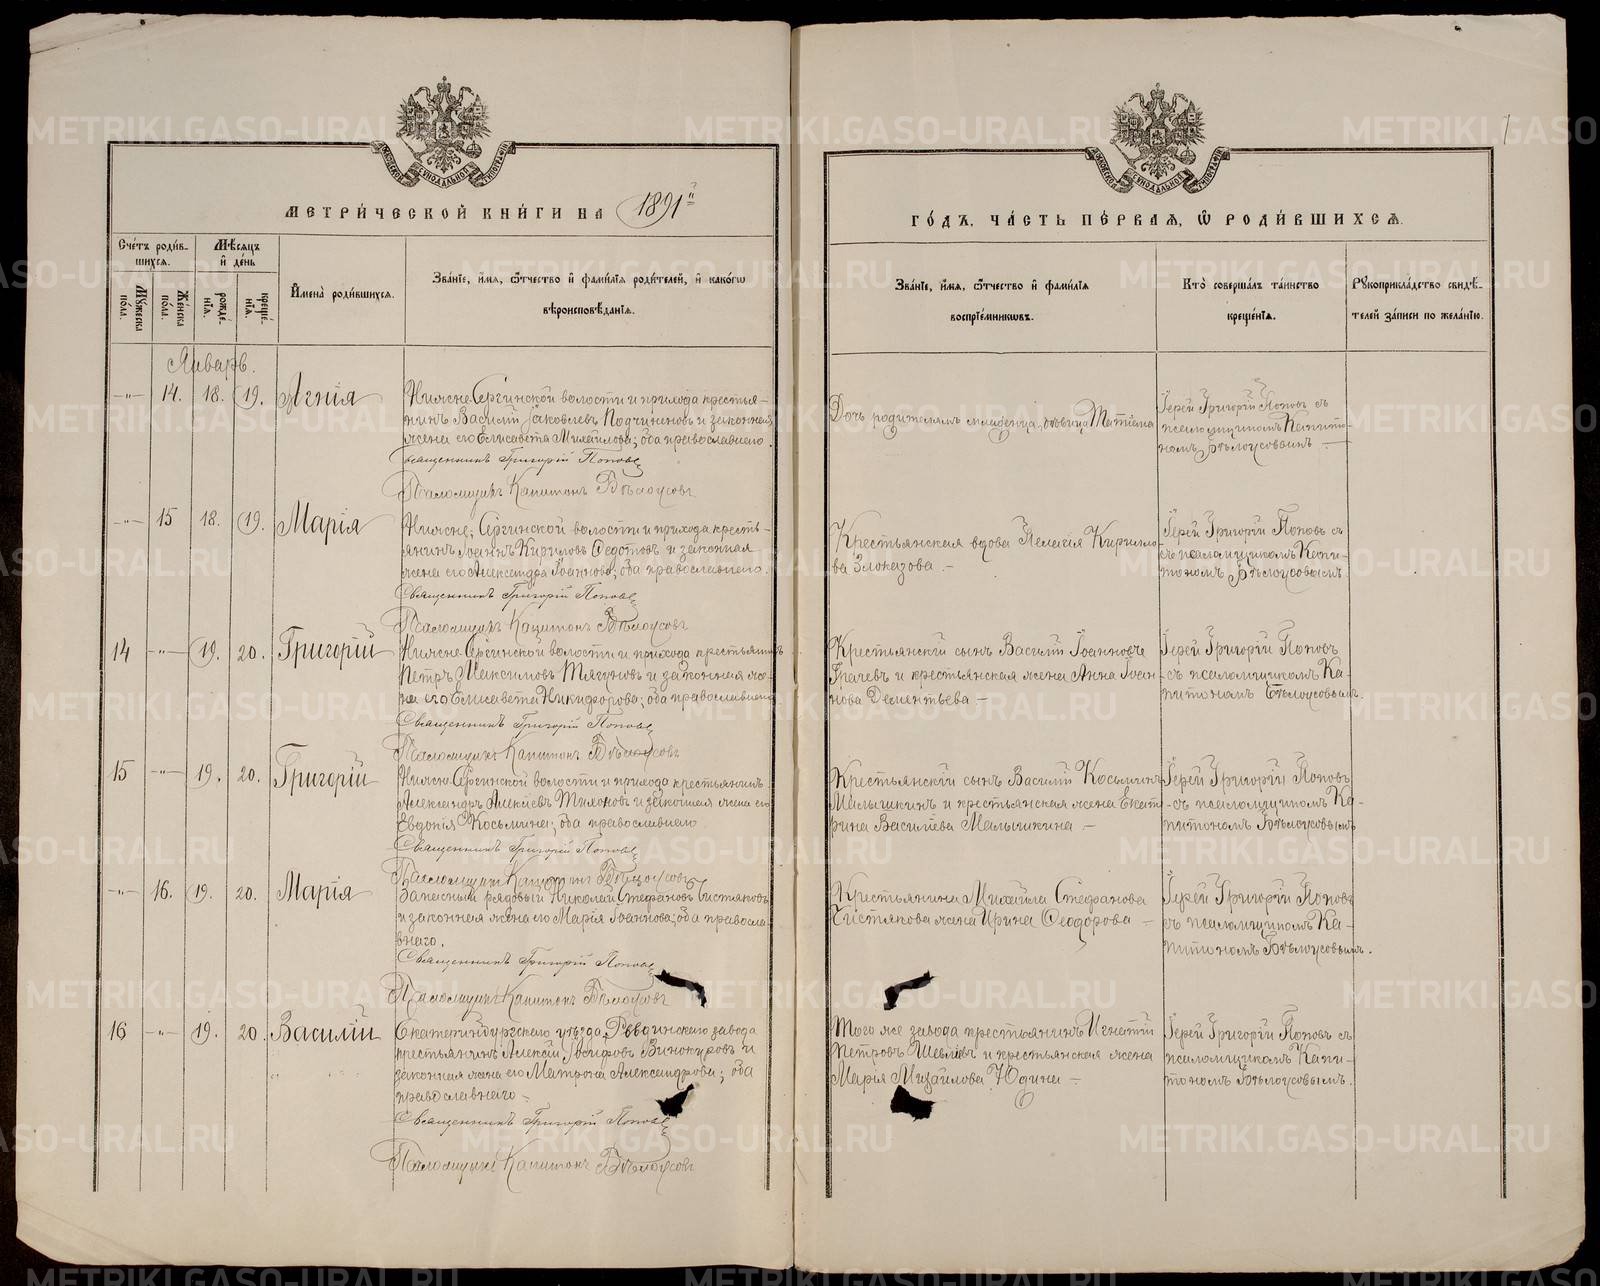 МЕТРИ́ЧЕСКОЙ КНИ́ГИ НА 1891й
Сче́тъ роди́вшихся.
Мѣ́сяцъ и́ де́нь
Мꙋ́жеска по́ла.
Же́нска по́ла.
рожде́нїѧ.
креще́нїѧ.
И҆мена̀ роди́вшихсѧ.
Зва́нїе, и҆́мѧ, ѻ҆́тчество и҆ фами́лїѧ роди́телей, и҆ како́гѡ
вѣроисповѣ́данїѧ.
Январь.
-"- 14. 18. 19. Агнія
Нижне-Сергинской волости и прихода крестья-
нинъ Василій Іаковлевъ Подчиненовъ и законная
жена его Елисавета Михайлова; оба православнаго.
Священникъ Григорій Поповъ
Псаломщикъ Капитонъ Бѣлоусовъ
-"- 15 18. 19. Марія
Нижне-Сергинской волости и прихода кресть-
янинъ Іоаннъ Кириловъ Ѳедотовъ и законная
жена его Александра Іоаннова; оба православнаго.
Священникъ Григорій Поповъ
Псаломщикъ Капитонъ Бѣлоусовъ
14 -"- 19. 20. Григорій
Нижне-Сергинской волости и прихода крестьянинъ
Петръ Максимовъ Тягуновъ и законная же-
на его Елисавета Никифорова; оба православнаго
Священникъ Григорій Поповъ
Псаломщикъ Капитонъ Бѣлоусовъ
15 -"- 19. 20. Григорій
Нижне-Сергинской волости и прихода крестьянинъ
Александръ Алексѣевъ Тихоновъ и законная жена его
Евдокія Косьмина; оба православнаго
Священникъ Григорій Поповъ
Псаломщикъ Капитонъ Бѣлоусовъ
-"- 16. 19. 20. Марія
Запасный рядовый Николай Стефановъ Чистяковъ
и законная жена его Марія Іоаннова; оба правосла-
внаго.
Священникъ Григорій Поповъ
Псаломщикъ Капитонъ Бѣлоусовъ
16 -"- 19. 20. Василій
Екатеринбургскаго уѣзда, Ревдинскаго завода
крестьянинъ Алексій Іосифовъ Винокуровъ и
законная жена его Матрона Александрова; оба
православнаго
Священникъ Григорій Поповъ
Псаломщикъ Капитонъ Бѣлоусовъ
1
ГО́ДЪ, ЧА́СТЬ ПЕ́РВАЯ, Ѡ РОДИ́ВШИХСЯ.
Зва́нїе, и҆́мѧ, ѻ҆́тчество и҆ фами́лїѧ
воспрїе́мникѡвъ.
Кто̀ соверша́лъ та́инство
креще́нїѧ.
Рꙋкоприкла́дство свидѣ́-
телей за́писи по жела́нїю.
Дочь родителямъ младенца, дѣвица Татіана
Іерей Григорій Поповъ съ
псаломщикомъ Капито-
номъ Бѣлоусовымъ
Крестьянская вдова Пелагія Кирилло-
ва Злоказова.
Іерей Григорій Поповъ с
съ псаломщикомъ Капи-
тономъ Бѣлоусовымъ
Крестьянскій сынъ Василій Іоанновъ
Грачевъ и крестьянская жена Анна Іоан-
нова Дементьева
Іерей Григорій Поповъ
съ псаломщикомъ Ка-
питономъ Бѣлоусовымъ.
Крестьянскій сынъ Василій Косьминъ
Малышкинъ и крестьянская жена Екате
рина Василіева Малышкина
Іерей Григорій Поповъ
съ псаломщикомъ Ка-
питономъ Бѣлоусовымъ
Крестьянина Михаила Стефанова
Чистякова жена Ирина Ѳеодорова
Іерей Григорій Поповъ
съ псаломщикомъ Ка-
питономъ Бѣлоусовымъ.
Того же завода крестьянинъ Игнатій
Петровъ и крестьянская жена
Марія Михаилова Юдина
Іерей Григорій Поповъ съ
псаломщикомъ Капи-
тономъ Бѣлоусовымъ.
METRIKI.GASO-URAL.RU